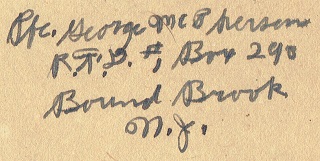 Pfc. George McPherson
R.F.D. #1, Box 290
Bound Brook
N.J.